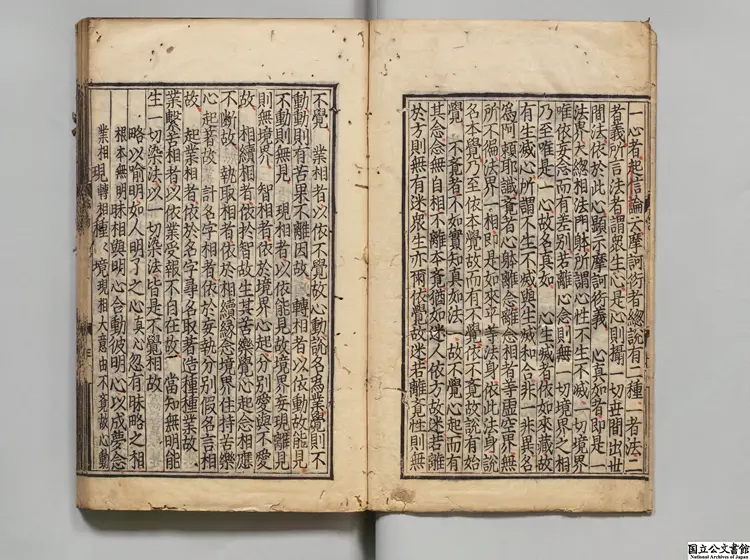 一心者起信論云摩訶衍者總說有二種一者法二
者義所言法者謂衆生心是心則攝一切世間出世
間法依於此心顯示摩訶衍義 心真如者即是一
法界大總相法門躰所謂心性不生不滅一切境界
唯依妄念而有差別若離心念則無一切境界之相
乃至唯是一心故名真如 心生滅者依如來藏故
有生滅心所謂不生不滅與生滅和合非一非異名
爲阿頼耶識 覺者心躰離念離念相者等虛空界無
所不徧法界一相即是如來平等法身依此法身說
名本覺乃至依本覺故而有不覺依不覺故說有始
覺 不覺者不如實知真如法一故不覺心起而有
其念念無自相不離本覺猶如迷人依方故迷若離
於方則無有迷衆生亦爾依覺故迷若離覺性則無
不覺 業相者以依不覺故心動說名爲業覺則不
動動則有苦果不離因故 轉相者以依動故能見
不動則無見 現相者以依能見故境界妄現離見
則無境界 智相者依於境界心起分別愛與不愛
故 相續相者依於智故生其苦樂覺心起念相應
不斷故 執取相者依於相續緣念境界住持苦樂
心起著故 計名字相者依於妄執分別假名言相
故 起業相者依於名字尋名取著造種種業故
業繫苦相者以依業受報不自在故 當知無明能
生一切染法以一切染法皆是不覺相故
略以喻明如人明了之心真心忽有昧略之相
根本無明昧相與明心合動彼明心以成夢念
業相現轉相種種境現相大意由不覺故心動
国立公文書館
National Archives of Japan